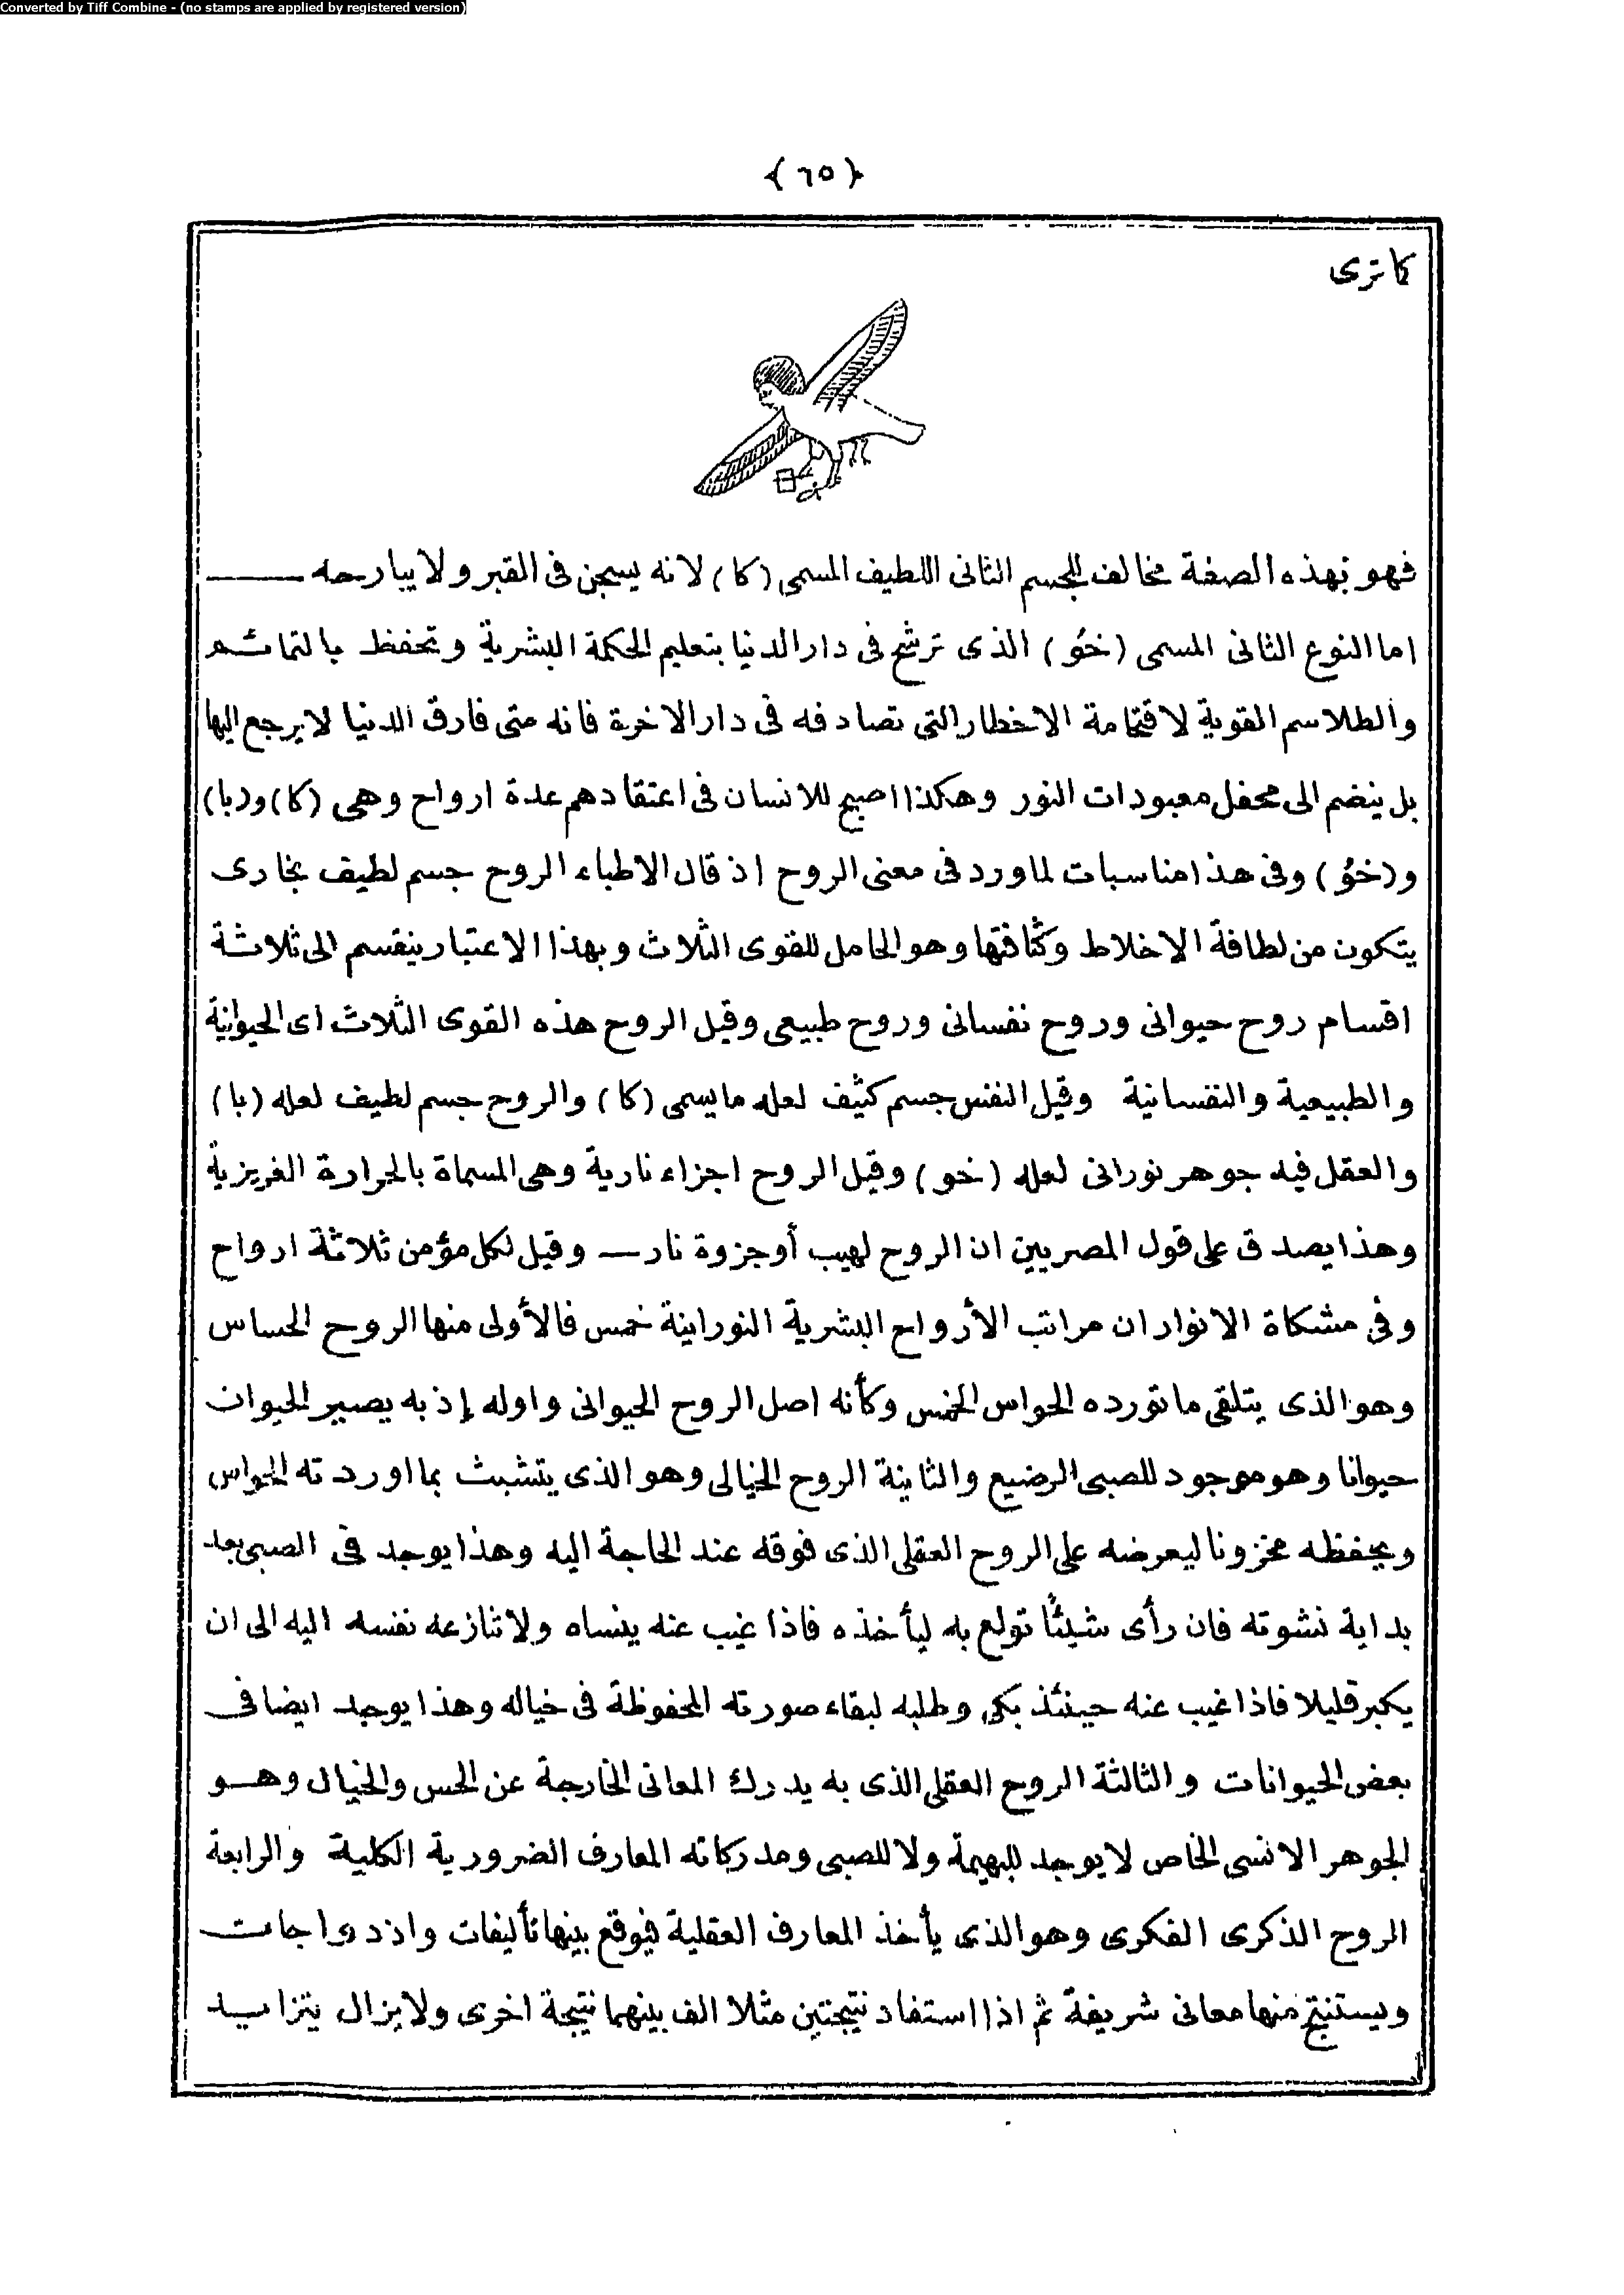 Converted by Tiff Combine - (no stamps are applied by registered version)
﴿ ٦٥ ﴾
كما ترى
فهو بهذه الصفة مخالف للجسم الثانى اللطيف المسمى (كا) لانه يسجن فى القبر ولا يبارحه
اما النوع الثانى المسمى (خؤ) الذى ترشح فى دار الدنيا بتعليم الحكمة البشرية وتحفظ بالتمائم
والطلاسم القوية لاقتحامة الاخطار التى تصادفه فى دار الاخرة فانه متى فارق الدنيا لا يرجع اليها
بل ينضم الى محفل معبودات النور وهكذا اصبح للانسان فى اعتقادهم عدة ارواح وهى (كا) و(با)
و(خؤ) وفى هذا مناسبات لما ورد فى معنى الروح اذ قال الاطباء الروح جسم لطيف بخارى
يتكون من لطافة الاخلاط وكثافتها وهو الحامل للقوى الثلاث وبهذا الاعتبار ينقسم الى ثلاثة
اقسام روح حيوانى وروح نفسانى وروح طبيعى وقيل الروح هذه القوى الثلاث اى الحيوانية
والطبيعية والنفسانية وقيل النفس جسم كثيف لعله ما يسمى (كا) والروح جسم لطيف لعله (با)
والعقل فيه جوهر نورانى لعله (خو) وقيل الروح اجزاء نارية وهى المسماة بالحرارة الغريزية
وهذا يصدق على قول المصريين ان الروح لهيب أو جزوة نار — وقيل لكل مؤمن ثلاثة ارواح
وفى مشكاة الانوار ان مراتب الأرواح البشرية النورانية خمس فالأولى منها الروح الحساس
وهو الذى يتلقى ما تورده الحواس الخمس وكأنه اصل الروح الحيوانى واوله إذ به يصير الحيوان
حيوانا وهو موجود للصبى الرضيع والثانية الروح الخيالى وهو الذى يتشبث بما اوردته الحواس
ويحفظه مخزونا ليعرضه على الروح العقلى الذى فوقه عند الحاجة اليه وهذا يوجد فى الصبى بعد
بداية نشوته فان رأى شيئًا تولع به ليأخذه فاذا غيب عنه ينساه ولا تنازعه نفسه اليه الى ان
يكبر قليلا فاذا غيب عنه حينئذ بكى وطلبه لبقاء صورته المحفوظة فى خياله وهذا يوجد ايضا فى
بعض الحيوانات والثالثة الروح العقلى الذى به يدرك المعانى الخارجة عن الحس والخيال وهو
الجوهر الانسى الخاص لا يوجد للبهيمة ولا للصبى ومدركاته المعارف الضرورية الكلية والرابعة
الروح الذكرى الفكرى وهو الذى يأخذ المعارف العقلية فيوقع بينها تأليفات وازدواجات
ويستنتج منها معانى شريفة ثم اذا استفاد نتيجتين مثلا الف بينهما نتيجة اخرى ولا يزال يتزايد